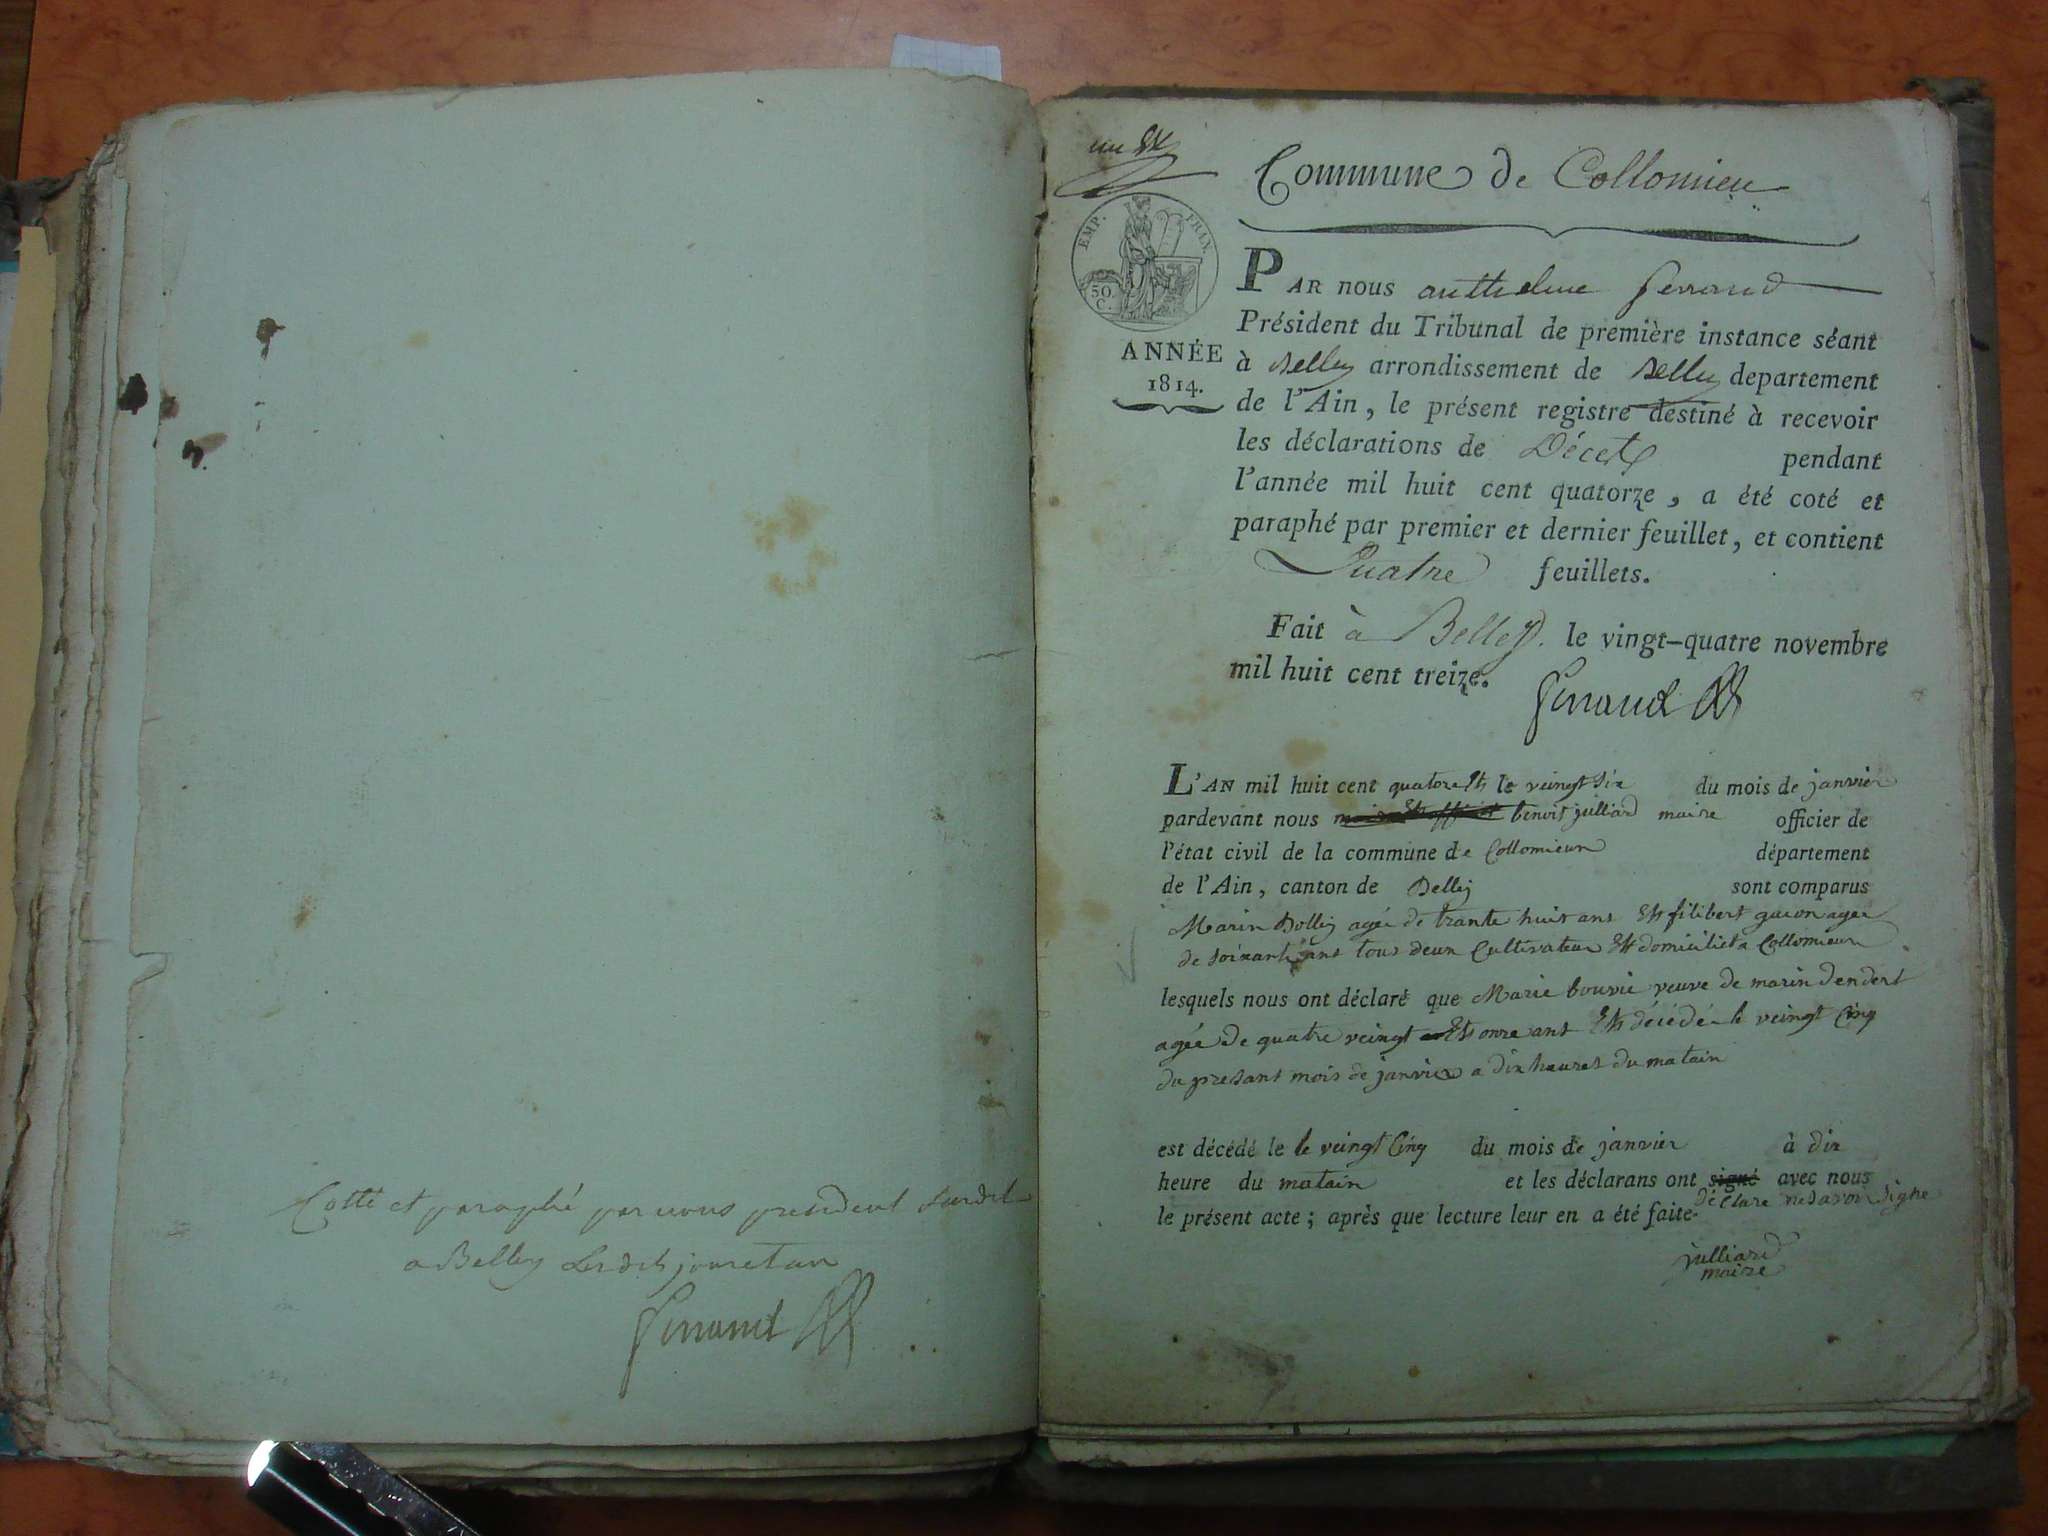 Cotté et paraphé par nous president susdit
a Belley lesdits jour et an
Ferrand
un
Commune de Collomieu
EMP. FRAN.
50. C.
ANNÉE
1814.
PAR nous anthelme ferrand
Président du Tribunal de première instance séant
à Belley arrondissement de Belley departement
de l'Ain, le présent registre destiné à recevoir
les déclarations de Décets pendant
l'année mil huit cent quatorze, a été coté et
paraphé par premier et dernier feuillet, et contient
Quatre feuillets.
Fait à Belley. le vingt-quatre novembre
mil huit cent treize.
Ferrand
L'AN mil huit cent quatorze Et le veingt six du mois de janvier
pardevant nous benoit julliard maire officier de
l'état civil de la commune de Collomieux département
de l'Ain, canton de Belley sont comparus
Marin Bolley agée de trante huit ans Et filibert guion agée
de soixante ans tous deux Cultivateur Et domicilié a Collomieux
lesquels nous ont déclaré que Marie bouvié veuve de marin dendert
agée de quatre veingt Et onze ans Et décédée le veingt Cinq
du presant mois de janvier a dix heures du matain
est décédé le le veingt Cinq du mois de janvier à dix
heure du matain et les déclarans ont signé avec nous
déclare ne savoir signe
le présent acte ; après que lecture leur en a été faite.
julliard
maire